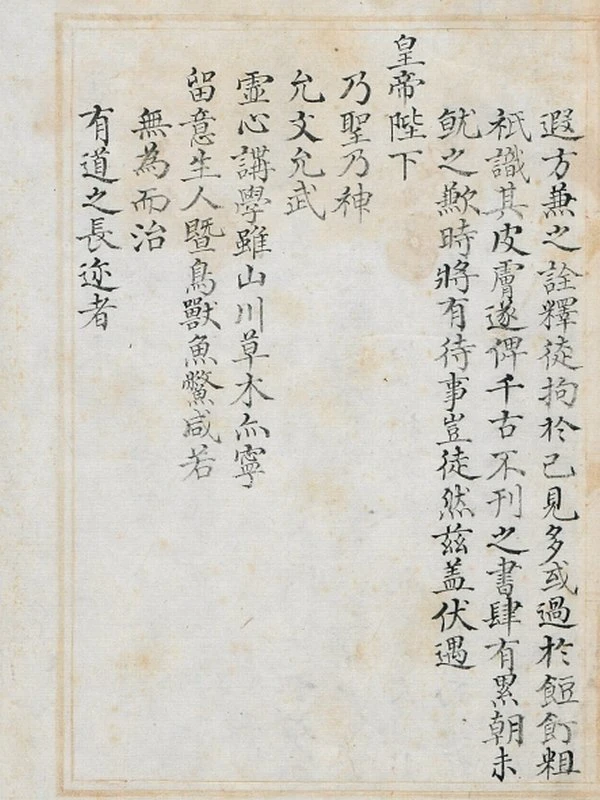 遐方兼之詮釋徒拘於己見多或過於餖飣粗
祇識其皮膚遂俾千古不刊之書肆有累朝未
就之歉時將有待事豈徒然茲盖伏遇
皇帝陛下
乃聖乃神
允文允武
虛心講學雖山川草木亦寧
留意生人暨鳥獸魚鱉咸若
無為而治
有道之長迹者